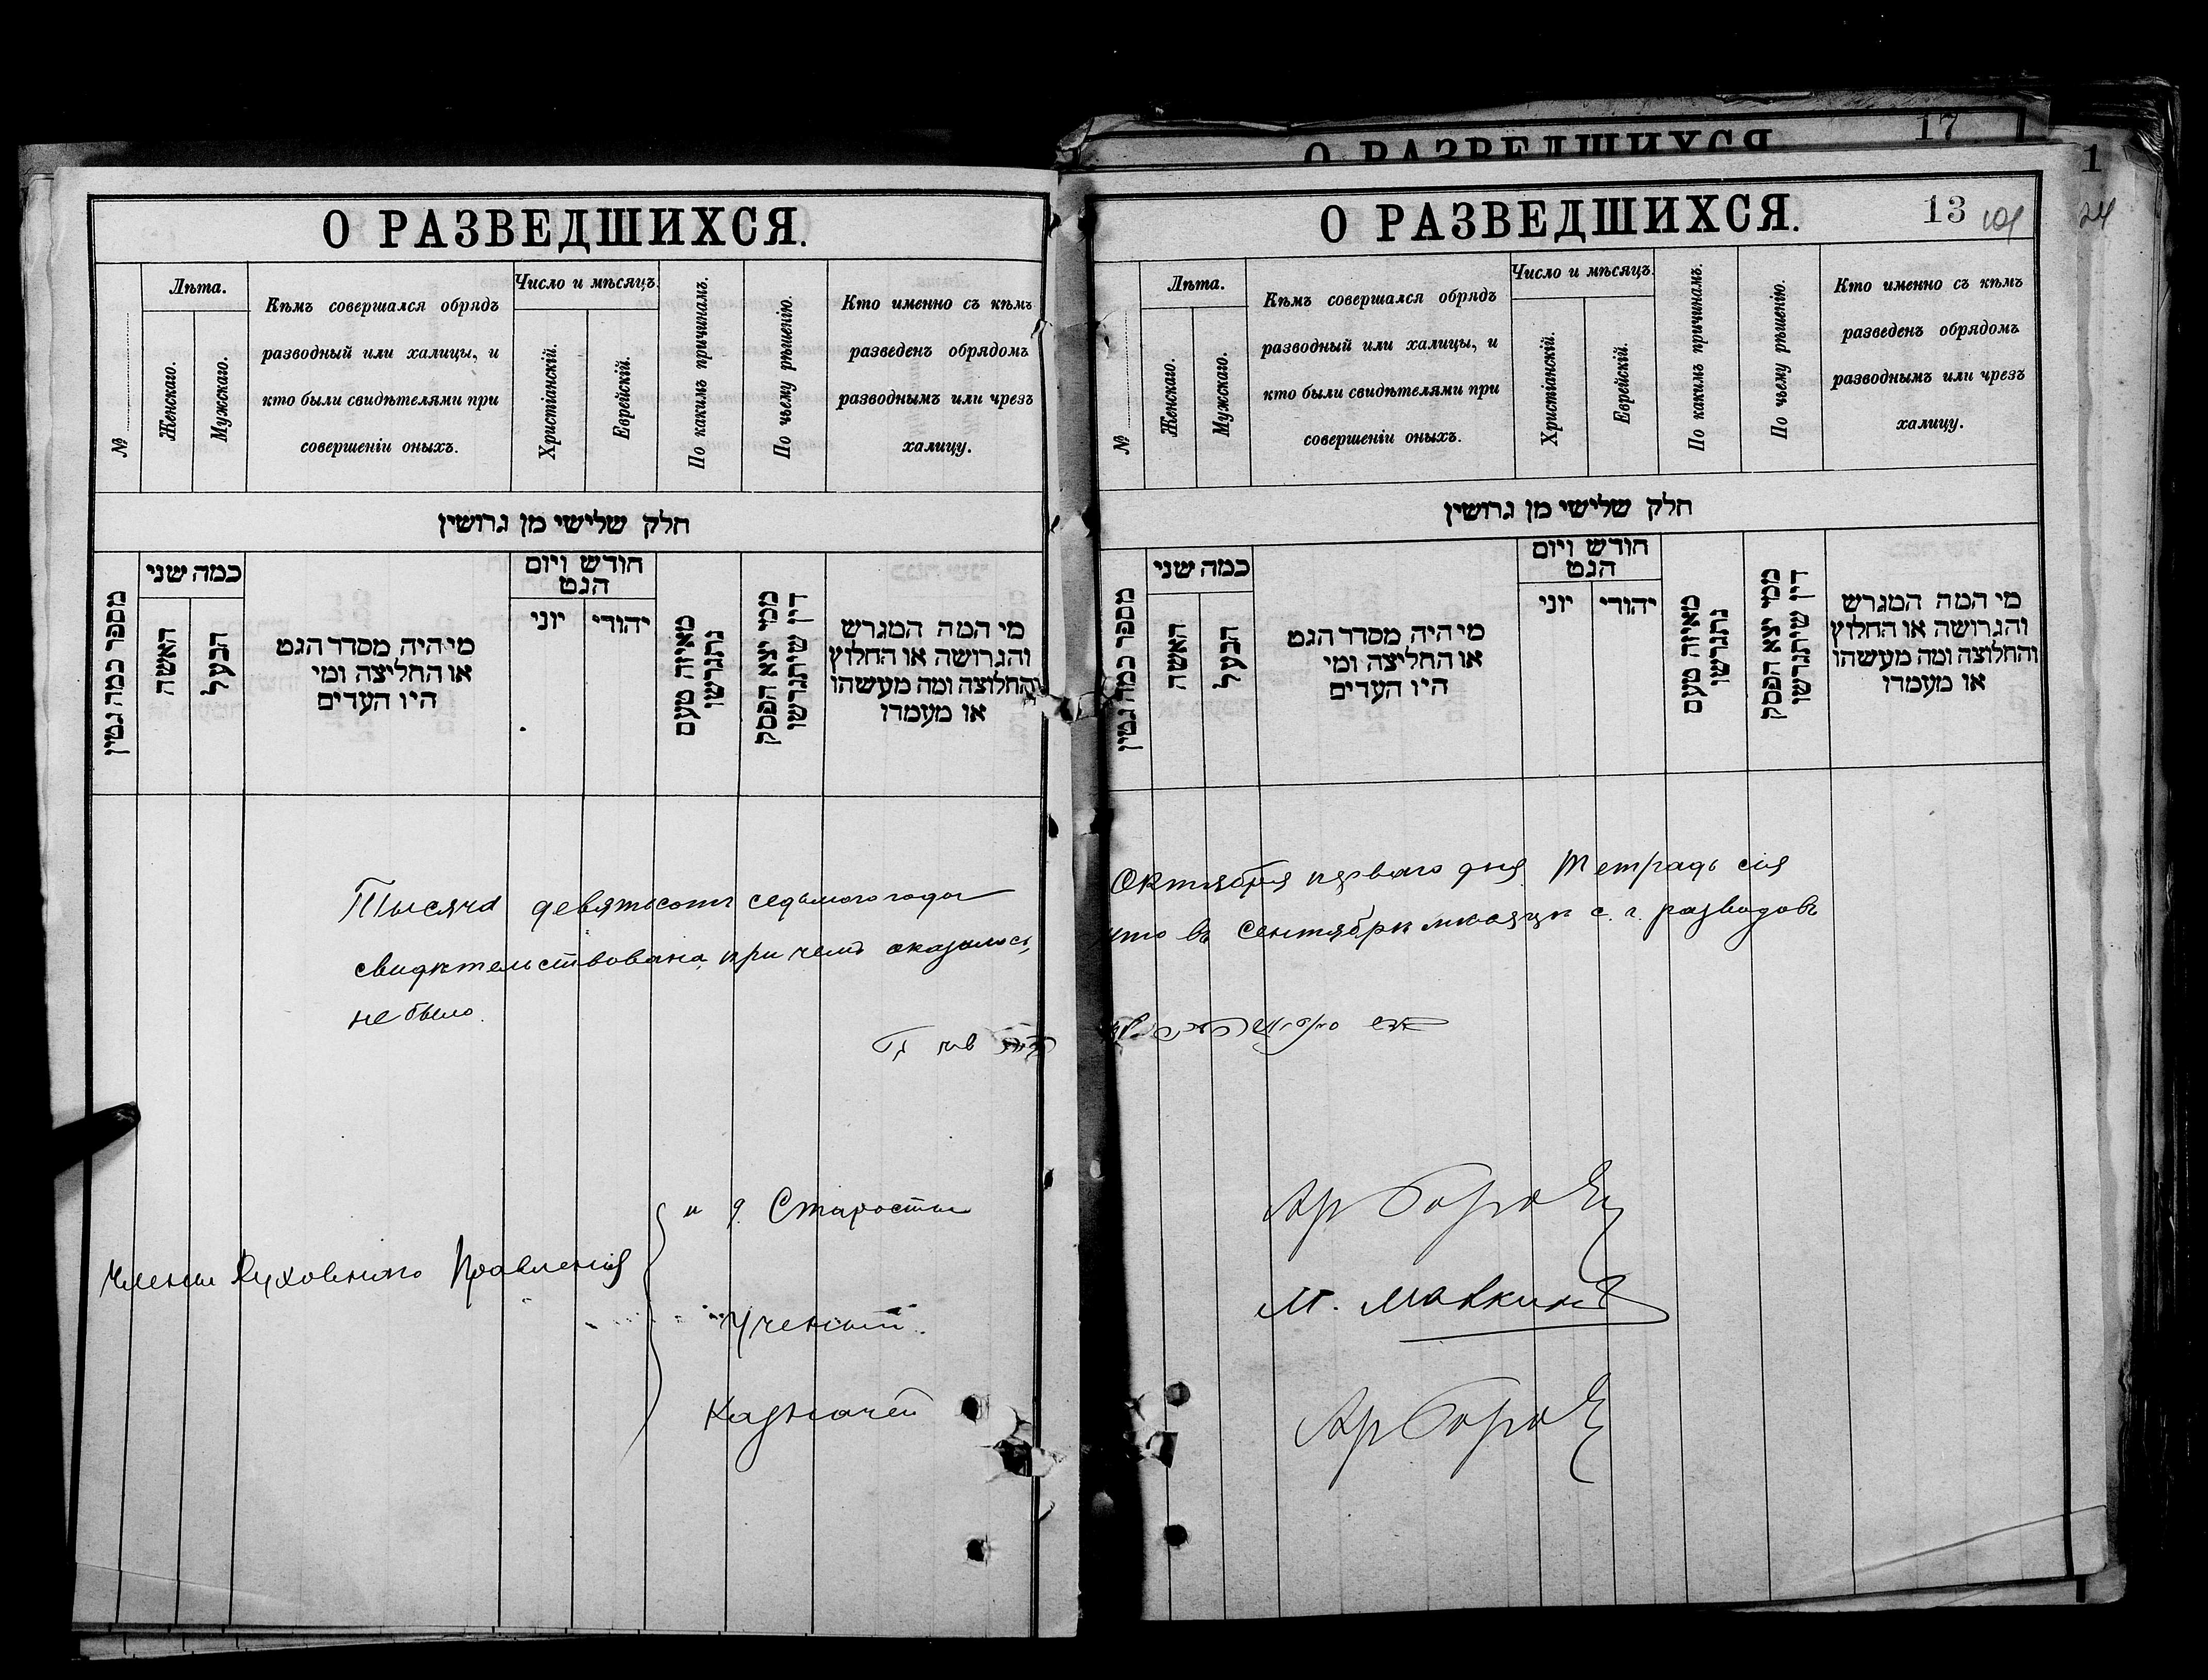 О РАЗВЕДШИХСЯ.
№
Лѣта.
Женскаго.
Мужскаго.
Кѣмъ совершался обрядъ
разводный или халицы, и
кто были свидѣтелями при
совершеніи оныхъ.
Число и мѣсяцъ.
Христіанскій.
Еврейскій.
По какимъ причинамъ.
По чьему рѣшенію.
Кто именно съ кѣмъ
разведенъ обрядомъ
разводнымъ или чрезъ
халицу.
חלק שלישי מן גרושין
מספר כמה גטין
כמה שני
האשה
הבעל
מי היה מסדר הגט
או החליצה ומי
היו העדים
חודש ויום
הגט
יוני
יהודי
מאיזה טעם
נתגרשו
ממי יצא הפסק
דין שיתגרשו
מי המה המגרש
והגרושה או החלוץ
והחלוצה ומה מעשהו
או מעמדו
Тысяча девятьсотъ седьмого года
свидѣтельствована, при чемъ оказалось,
не было.
Члены Духовнаго Правленія
и д. Старосты
Ученый
Казначей
О РАЗВЕДШИХСЯ
17
1
24
О РАЗВЕДШИХСЯ.
13
№
Лѣта.
Женскаго.
Мужскаго.
Кѣмъ совершался обрядъ
разводный или халицы, и
кто были свидѣтелями при
совершеніи оныхъ.
Число и мѣсяцъ.
Христіанскій.
Еврейскій.
По какимъ причинамъ.
По чьему рѣшенію.
Кто именно съ кѣмъ
разведенъ обрядомъ
разводнымъ или чрезъ
халицу.
חלק שלישי מן גרושין
מספר כמה גטין
כמה שני
האשה
הבעל
מי היה מסדר הגט
או החליצה ומי
היו העדים
חודש ויום
הגט
יוני
יהודי
מאיזה טעם
נתגרשו
ממי יצא הפסק
דין שיתגרשו
מי המה המגרש
והגרושה או החלוץ
והחלוצה ומה מעשהו
או מעמדו
Октября перваго дня Тетрадь сія
что въ Сентябрѣ мѣсяцѣ с. г. разводовъ